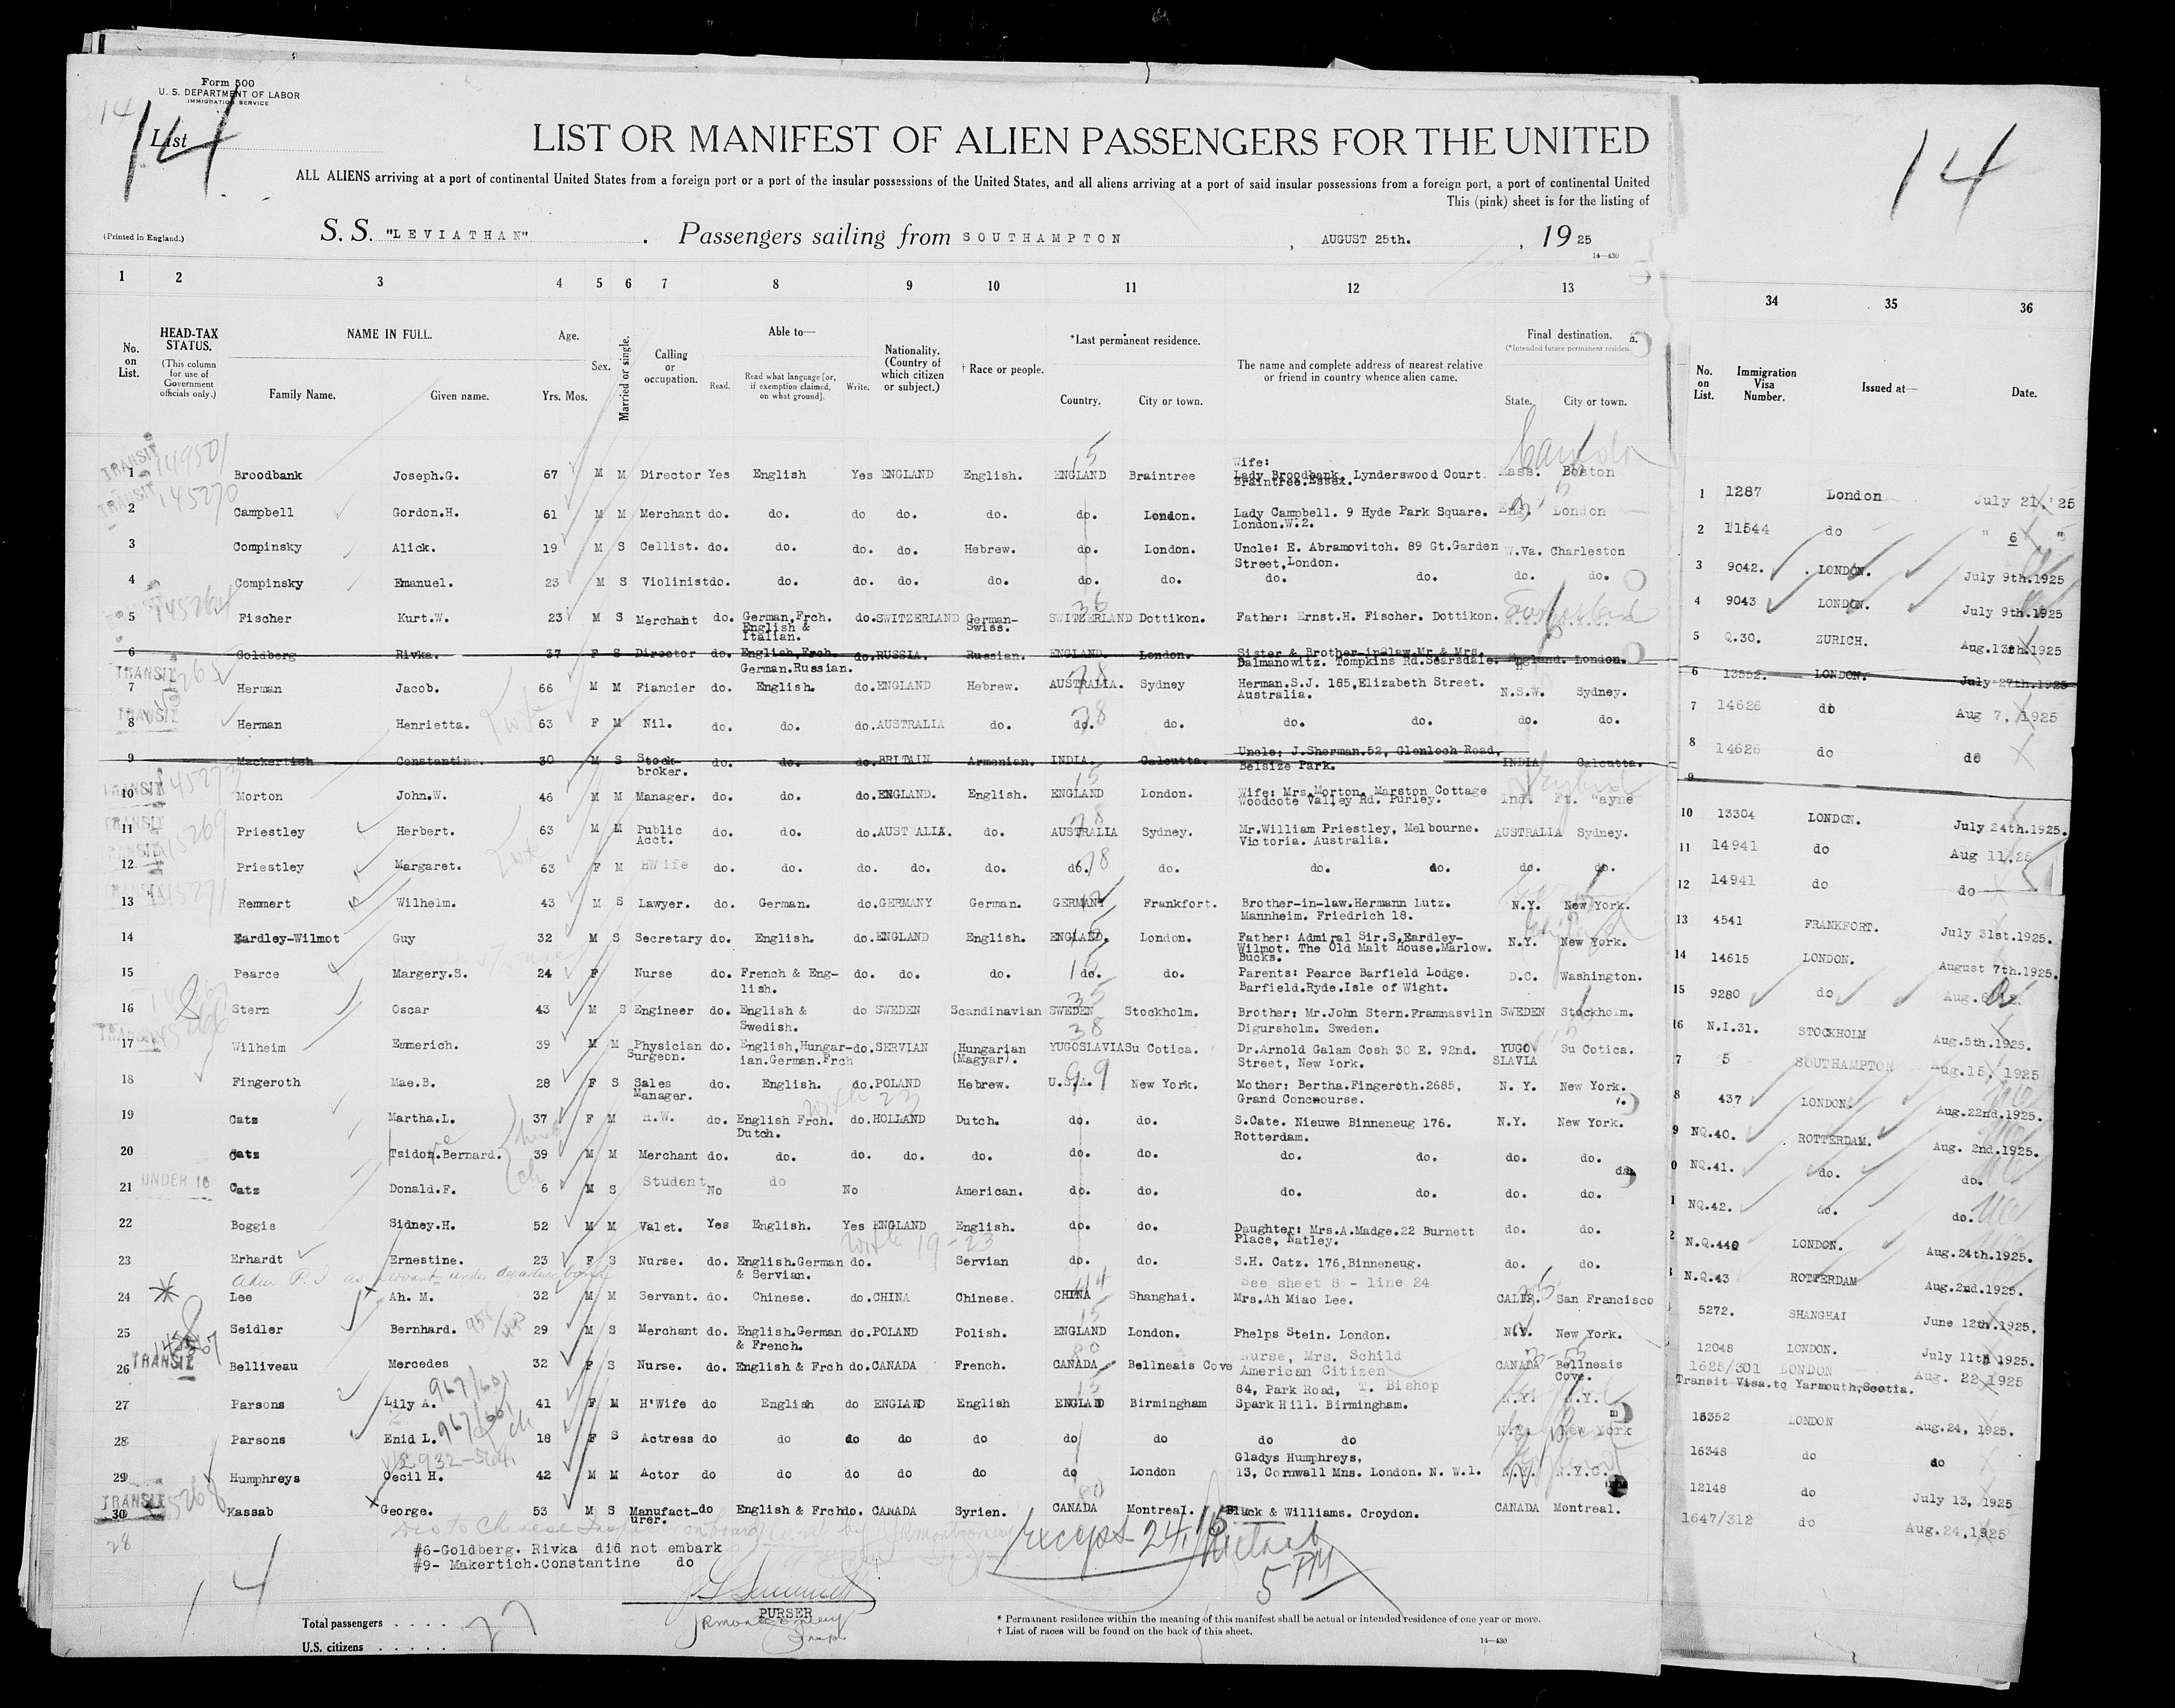 Form 500
U. S. DEPARTMENT OF LABOR
IMMIGRATION SERVICE
14
List 14
14
LIST OR MANIFEST OF ALIEN PASSENGERS FOR THE UNITED
ALL ALIENS arriving at a port of continental United States from a foreign port or a port of the insular possessions of the United States, and all aliens arriving at a port of said insular possessions from a foreign port, a port of continental United
This (pink) sheet is for the listing of
(Printed in England.)
S. S. "LEVIATHAN" . Passengers sailing from SOUTHAMPTON , AUGUST 25th. , 19 25
14—430
1 2 3 4 5 6 7 8 9 10 11 12 13 34 35 36
No. on List.
HEAD-TAX STATUS.
(This column for use of Government officials only.)
NAME IN FULL.
Family Name. Given name.
Age.
Yrs. Mos.
Sex.
Married or single.
Calling or occupation.
Able to—
Read. Read what language [or, if exemption claimed, on what ground]. Write.
Nationality. (Country of which citizen or subject.)
† Race or people.
*Last permanent residence.
Country. City or town.
The name and complete address of nearest relative or friend in country whence alien came.
Final destination.
(*Intended future permanent residen
State. City or town.
No. on List.
Immigration Visa Number.
Issued at—
Date.
TRANSIT 149501
1 Broodbank Joseph.G. 67 M M Director Yes English Yes ENGLAND English. ENGLAND Braintree Wife: Lady Broodbank. Lynderswood Court. Braintree.Essex. Mass. Boston Canada 15
1 1287 London July 21 '25
TRANSIT 145270
2 Campbell Gordon.H. 61 M M Merchant do. do. do do. do. do. London. Lady Campbell. 9 Hyde Park Square. London.W.2. Eng. London
2 11544 do " 6 "
3 Compinsky Alick. 19 M S Cellist. do. do. do. do. Hebrew. do. London. Uncle: E. Abramovitch. 89 Gt.Garden Street,London. W.Va. Charleston
3 9042. LONDON. July 9th.1925
4 Compinsky Emanuel. 23 M S Violinist do. do. do. do. do. do. do. do. do. do. do.
4 9043 LONDON. July 9th.1925
5 Fischer Kurt.W. 23 M S Merchant do. German.Frch. English & Italian. do. SWITZERLAND German-Swiss. SWITZERLAND Dottikon. Father: Ernst.H. Fischer. Dottikon. Switzerland 36
5 Q.30. ZURICH. Aug.13th.1925
6 Goldberg Rivka. 37 F S Director do. English.Frch. German.Russian. do. RUSSIA. Russian. ENGLAND. London. Sister & Brother-in-law.Mr & Mrs. Dalmanowitz. Tompkins Rd.Scarsdale. England. London.
6 13552. LONDON. July 27th.1925
TRANSIT
7 Herman Jacob. 66 M M Fiancier do. English. do. ENGLAND Hebrew. AUSTRALIA. Sydney Herman.S.J. 185,Elizabeth Street. Australia. N.S.W. Sydney. 78
7 14626 do Aug 7, 1925
TRANSIT
8 Herman Henrietta. 63 F M Nil. do. do. do. AUSTRALIA do. do. do. do. do. do. do. 78
8 14626 do do
9 Mackertich Constantine. 30 M S Stock-broker. do. do. do. BRITAIN Armenian. INDIA. Calcutta. Uncle: J.Sherman.52, Glenloch Road, Belsize Park. INDIA Calcutta.
9
TRANSIT 145273
10 Morton John.W. 46 M M Manager. do. do. do. ENGLAND. English. ENGLAND London. Wife: Mrs.Morton. Marston Cottage Woodcote Valley Rd. Purley. Ind. Ft. Wayne 15
10 13304 LONDON. July 24th.1925.
TRANSIT 145269
11 Priestley Herbert. 63 M M Public Acct. do. do. do. AUSTRALIA. do. AUSTRALIA Sydney. Mr.William Priestley, Melbourne. Victoria. Australia. AUSTRALIA Sydney. 78
11 14941 do Aug 11.25
TRANSIT
12 Priestley Margaret. 63 F M HWife do. do. do. do. do. do. do. do. do. do. do. 78
12 14941 do do
TRANSIT 145271
13 Remmert Wilhelm. 43 M S Lawyer. do. German. do. GERMANY German. GERMANY Frankfort. Brother-in-law.Hermann Lutz. Mannheim. Friedrich 18. N.Y. New York.
13 4541 FRANKFORT. July 31st.1925.
14 Eardley-Wilmot Guy 32 M S Secretary do. English. do. ENGLAND English. ENGLAND. London. Father: Admiral Sir.S.Eardley-Wilmot. The Old Malt House.Marlow. Bucks. N.Y. New York. 15
14 14615 LONDON. August 7th.1925.
15 Pearce Margery.S. 24 F Nurse do. French & English. do. do. do. do. do. Parents: Pearce Barfield Lodge. Barfield.Ryde.Isle of Wight. D.C. Washington. 15
15 9280 do Aug.6
16 Stern Oscar 43 M S Engineer do. English & Swedish. do SWEDEN Scandinavian SWEDEN Stockholm. Brother: Mr.John Stern.Framnasviln Digursholm. Sweden. SWEDEN Stockholm. 35
16 N.I.31. STOCKHOLM Aug.5th.1925.
TRANSIT 145266
17 Wilheim Emmerich. 39 M M Physician Surgeon. do. English,Hungar-ian.German.Frch do. SERVIAN Hungarian (Magyar). YUGOSLAVIA Su Cotica. Dr.Arnold Galam Cosh 30 E. 92nd. Street, New York. YUGO SLAVIA Su Cotica. 38
7 5 SOUTHAMPTON Aug.15, 1925
18 Fingeroth Mae.B. 28 F S Sales Manager. do. English. do. POLAND Hebrew. U.S.A. New York. Mother: Bertha.Fingeroth.2685, Grand Concnourse. N. Y. New York. 99
8 437 LONDON. Aug.22nd.1925.
with 23
19 Catz Martha.L. 37 F M H.W. do. English Frch. Dutch. do. HOLLAND Dutch. do. do. S.Cate. Nieuwe Binneneug 176. Rotterdam. N.Y. New York.
9 NQ.40. ROTTERDAM. Aug. 2nd.1925.
20 Catz Tsidor.Bernard. 39 M M Merchant do. do. do. do. do. do. do. do. do. do. do.
0 NQ.41. do. do.
UNDER 16
21 Catz Donald.F. 6 M S Student No do No American. do. do. do. do. do. do.
1 NQ.42. do. do.
22 Boggis Sidney.H. 52 M M Valet. Yes English. Yes ENGLAND English. do. do. Daughter: Mrs.A.Madge.22 Burnett Place, Natley. do. do.
2 N.Q.448 LONDON. Aug.24th.1925.
with 19-23
23 Erhardt Ernestine. 23 F S Nurse. do. English.German & Servian. do. Servian do. do. S.H. Catz. 176,Binneneug. do. do.
N.Q.43 ROTTERDAM Aug.2nd.1925.
Adm P.I. as servant under departure bond
See sheet 8 - line 24
24 Lee Ah. M. 32 M M Servant. do. Chinese. do. CHINA Chinese. CHINA Shanghai. Mrs.Ah Miao Lee. CALIF. San Francisco
5272. SHANGHAI June 12th.1925.
25 Seidler Bernhard. 29 M S Merchant do. English.German & French. do. POLAND Polish. ENGLAND London. Phelps Stein. London. N.Y. New York. 15
12048 LONDON. July 11th 1925.
TRANSIT
26 Belliveau Mercedes 32 F S Nurse. do. English & Frch do. CANADA French. CANADA Bellneais Cove Nurse, Mrs. Schild American Citizen CANADA Bellneais Cove.
1625/301 LONDON Aug. 22 1925
Transit Visa.to Yarmouth,Scotia.
967/601
27 Parsons Lily A. 41 F M H'Wife do English do ENGLAND English ENGLAND Birmingham 84, Park Road, T. Bishop Spark Hill. Birmingham. N.Y. N.Y.
16352 LONDON Aug.24, 1925.
967/601 ch
28 Parsons Enid L. 18 F S Actress do do do do do do do do do N.Y. New York
16348 do do
29 Humphreys Cecil H. 42 M M Actor do do do do do do London Gladys Humphreys, 13, Cornwall Mns. London. N. W.1. N.Y. N.Y.C.
12148 do July 13, 1925
TRANSIT 145268
30 Kassab George. 53 M S Manufact-urer. do English & Frch do. CANADA Syrien. CANADA Montreal. Black & Williams. Croydon. CANADA Montreal.
1647/312 do Aug.24,1925
28
#6-Goldberg. Rivka did not embark
#9- Makertich.Constantine do
Except 24, 16
5 PM
14
PURSER
JRMontgomery
Total passengers . . . . 27
U.S. citizens . . . . .
* Permanent residence within the meaning of this manifest shall be actual or intended residence of one year or more.
† List of races will be found on the back of this sheet.
14—430